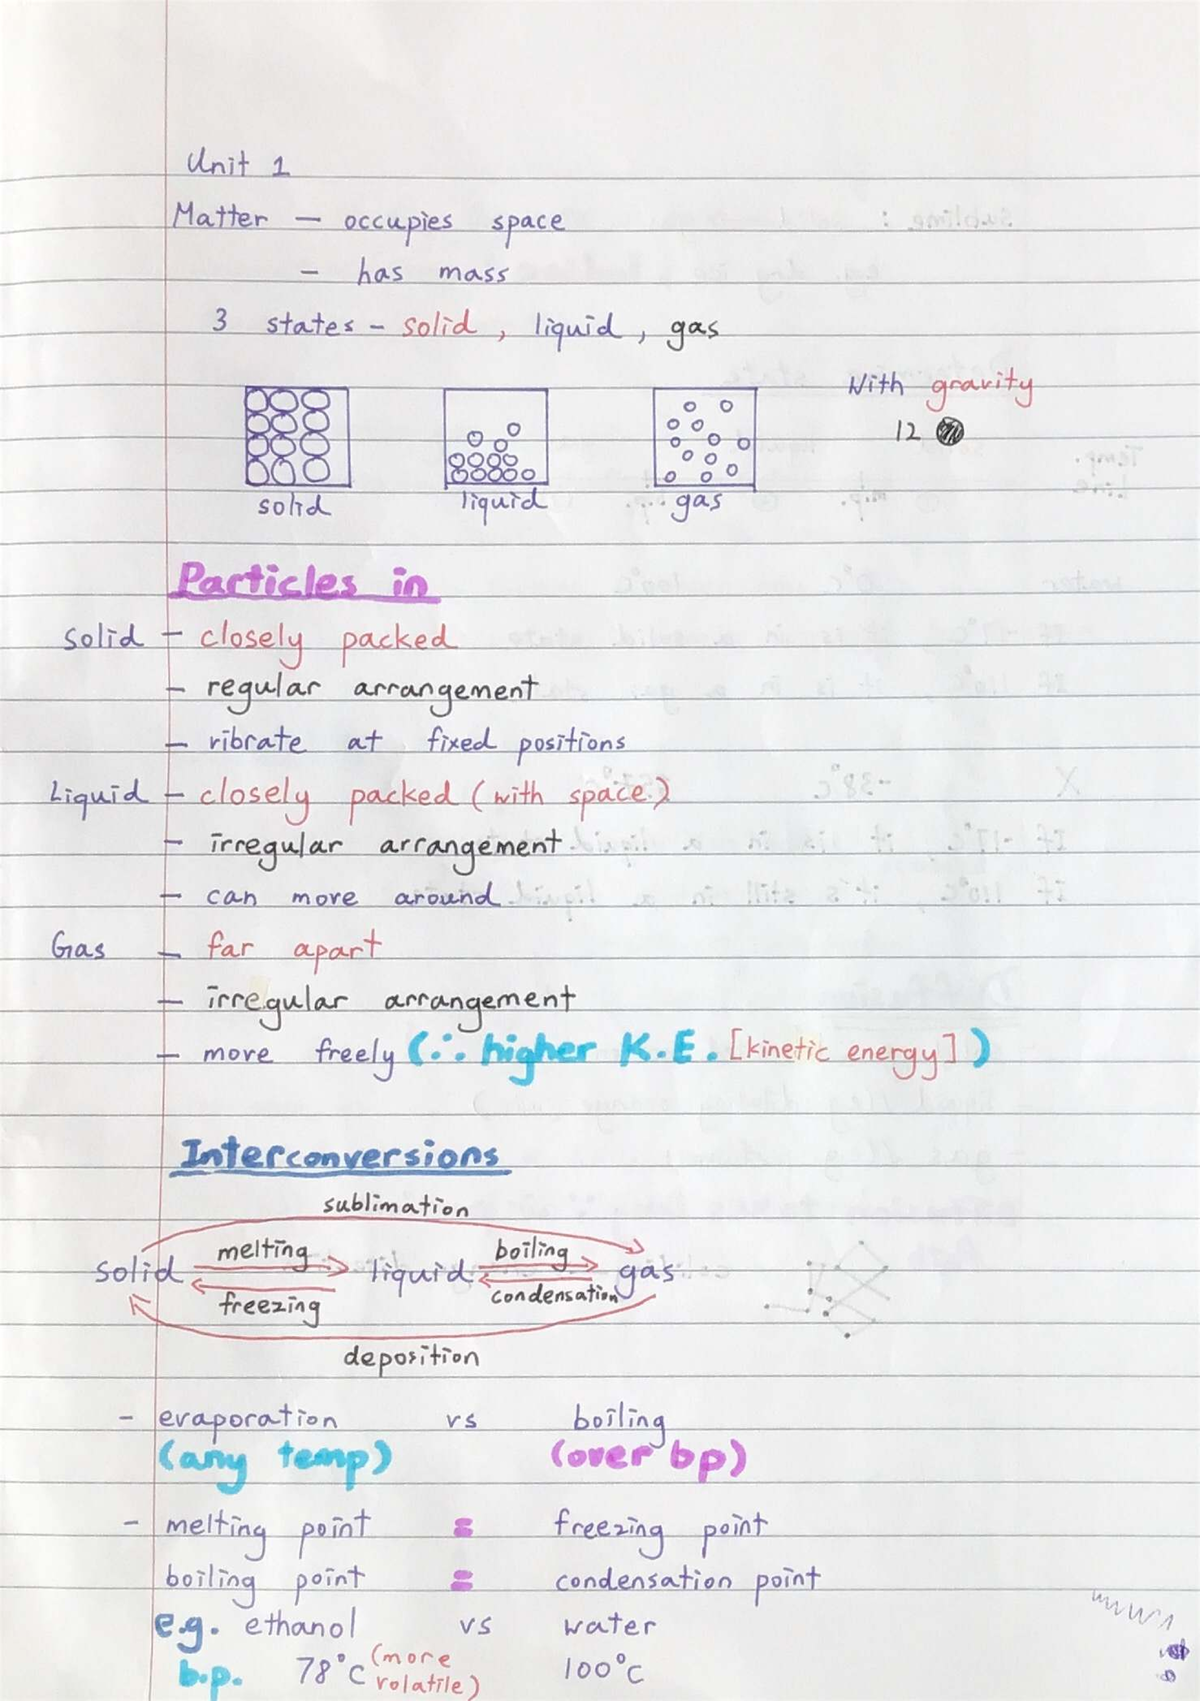 Unit 1
Matter — occupies space
— has mass
3 states - solid, liquid, gas
With gravity
12
solid liquid gas
Particles in
Solid — closely packed
— regular arrangement
— vibrate at fixed positions
Liquid — closely packed (with space)
— irregular arrangement
— can move around
Gas — far apart
— irregular arrangement
— move freely (∴ higher K.E. [kinetic energy])
Interconversions
sublimation
melting boiling
solid liquid gas
freezing condensation
deposition
- evaporation vs boiling
(any temp) (over bp)
- melting point = freezing point
boiling point = condensation point
e.g. ethanol vs water
b.p. 78°C (more volatile) 100°C